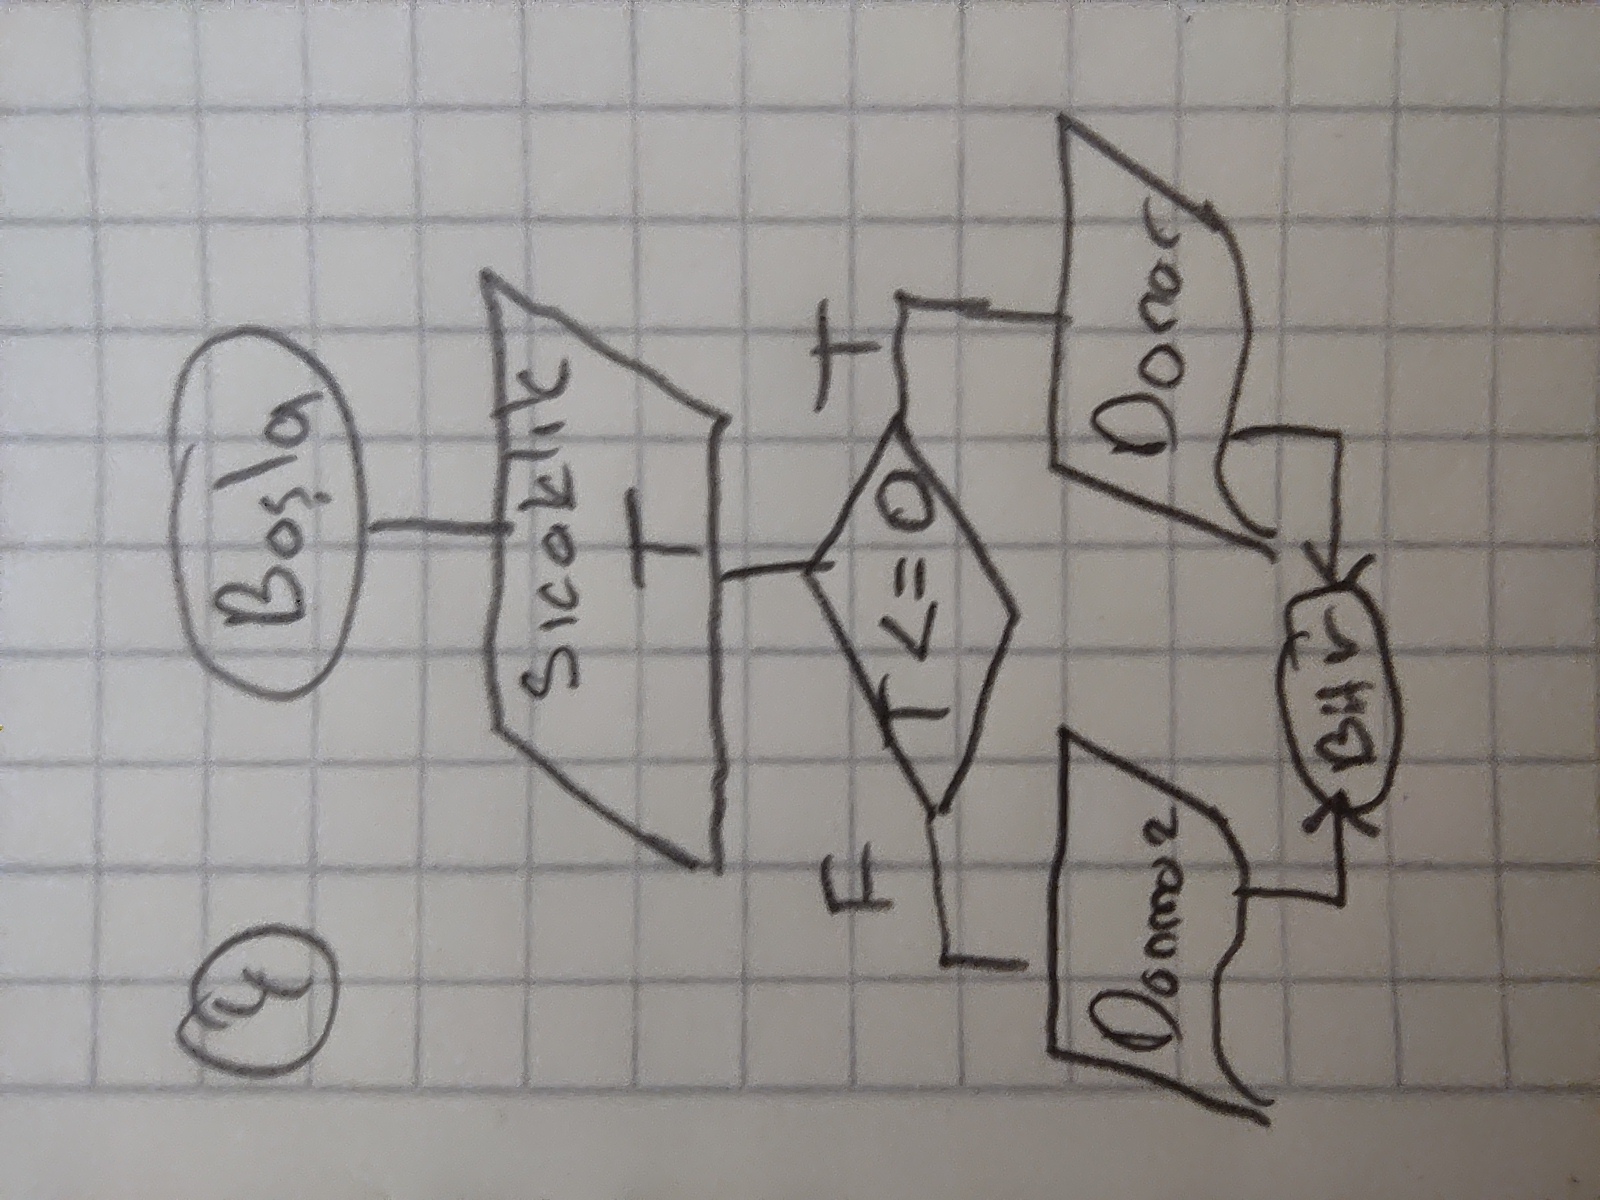 4
Başla
Sıcaklık
T
F
T
T <= 0
Donmaz
Donar
Bitir